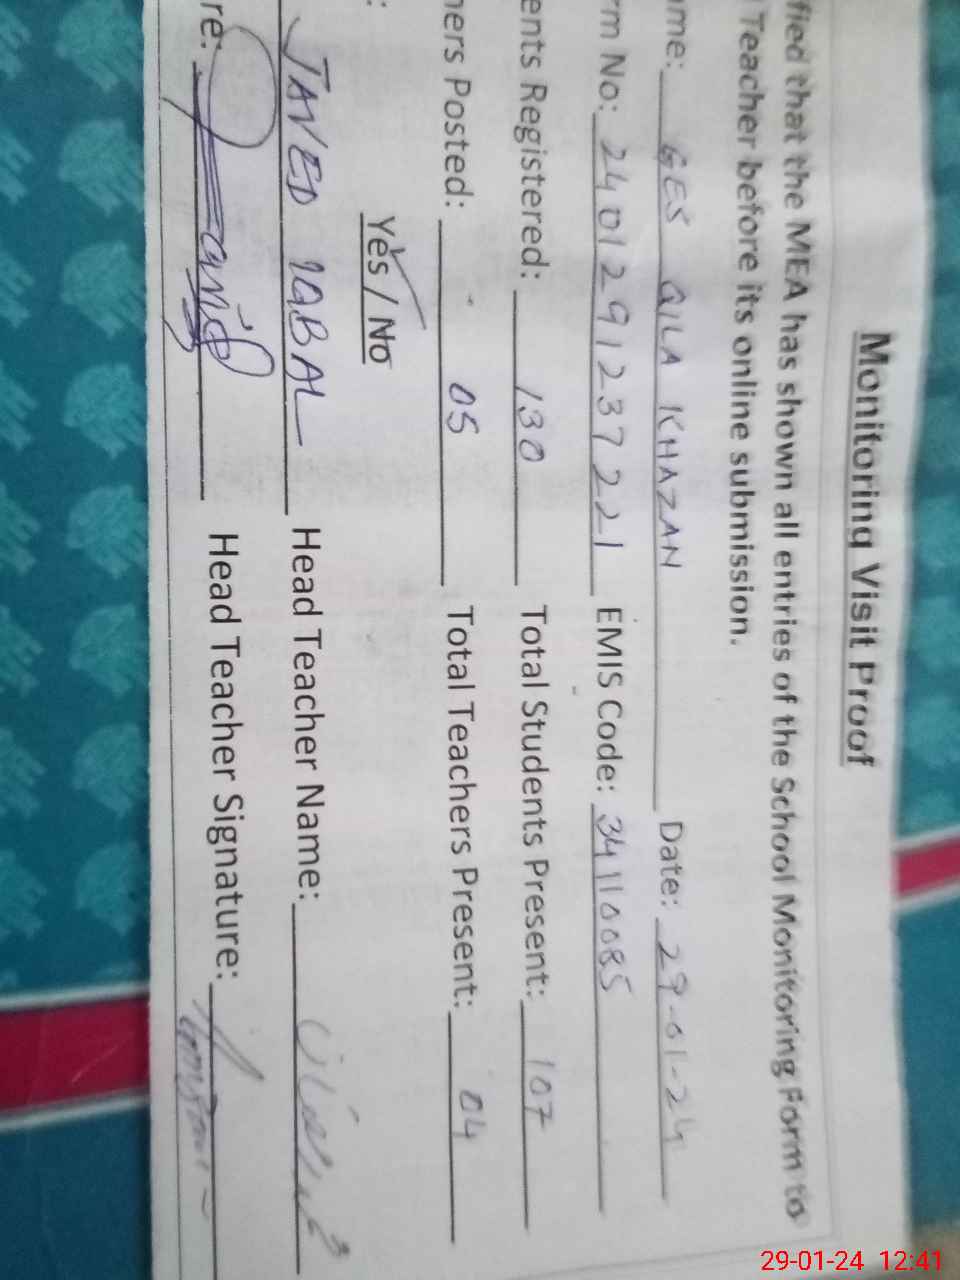 Monitoring Visit Proof
fied that the MEA has shown all entries of the School Monitoring Form to
Teacher before its online submission.
me: GES QILA KHAZAN Date: 29-01-24
rm No: 2401291237221 EMIS Code: 34110085
ents Registered: 130 Total Students Present: 107
hers Posted: 05 Total Teachers Present: 04
: Yes / No
JAVED IQBAL Head Teacher Name:
re: Javid Head Teacher Signature:
29-01-24 12:41